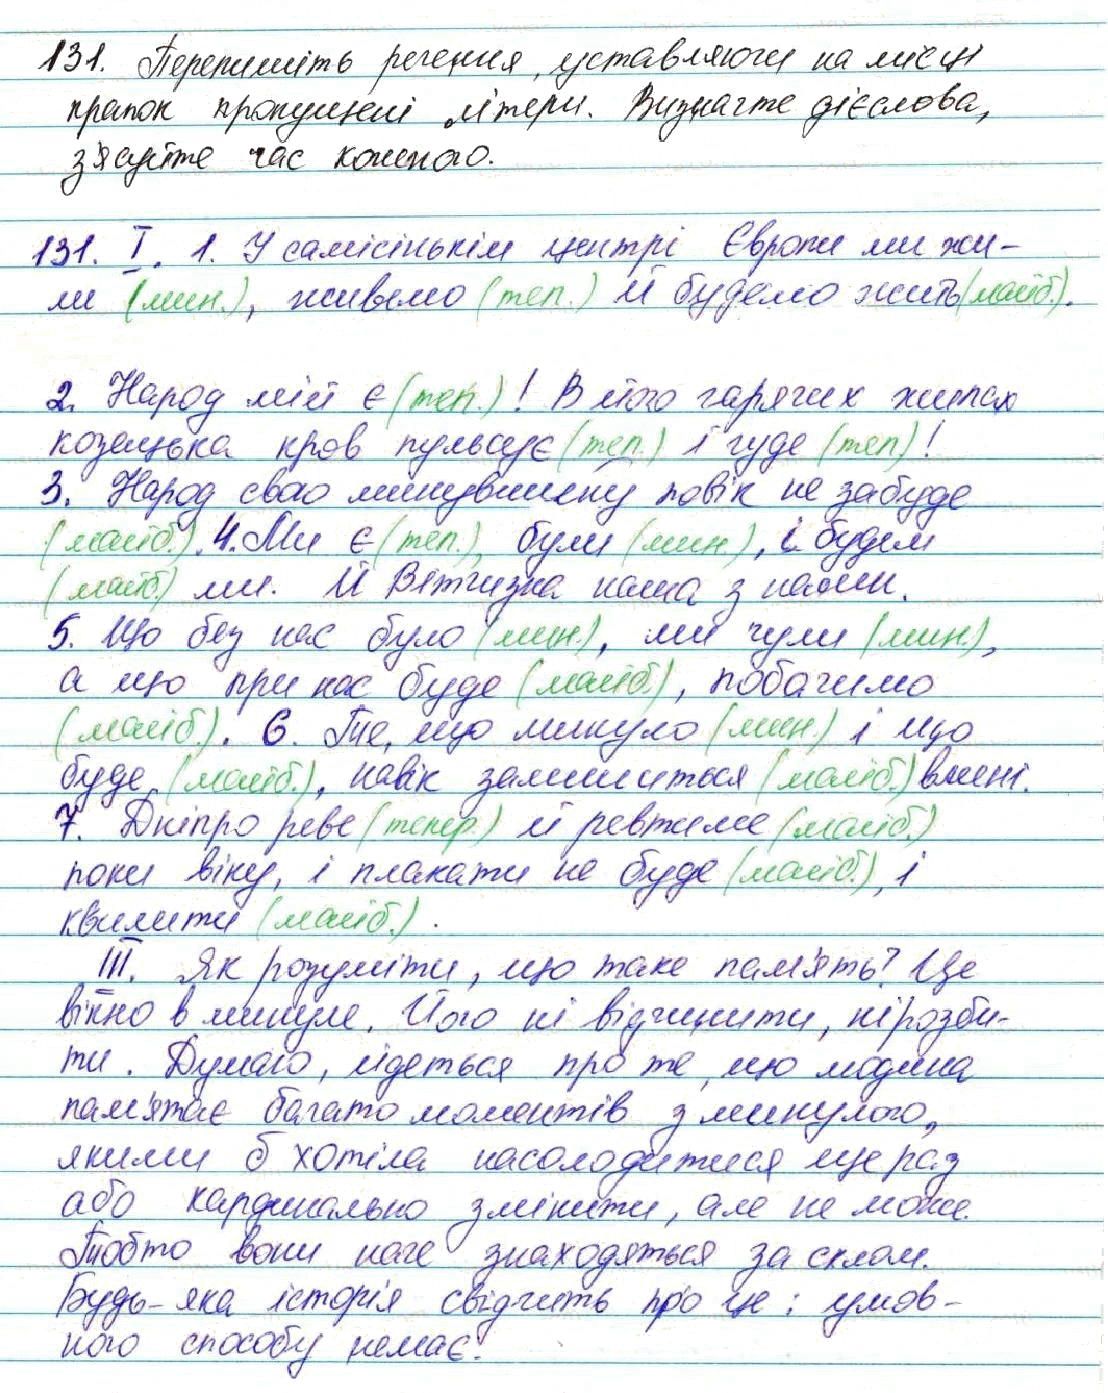 131. Перепишіть речення, уставляючи на місці
крапок пропущені літери. Визначте дієслова,
з'ясуйте час кожного.
131. I. 1. У самісінькім центрі Європи ми жи-
ли (мин.), живемо (теп.) й будемо жить (майб.).
2. Народ мій є (теп.)! В його гарячих жилах
козацька кров пульсує (теп.) і гуде (теп)!
3. Народ свою минувшину повік не забуде
(майб.). 4. Ми є (теп.), були (мин.), і будем
(майб) ми. Й Вітчизна наша з нами.
5. Що без нас було (мин.), ми чули (мин.),
а що при нас буде (майб.), побачимо
(майб.). 6. Те, що минуло (мин.) і що
буде (майб.), навік залишиться (майб.) в мені.
7. Дніпро реве (тепер.) й ревтиме (майб.)
поки віку, і плакати не буде (майб.), і
квилити (майб.).
III. Як розуміти, що таке пам'ять? Це
вікно в минуле. Його ні відчинити, ні розби-
ти. Думаю, йдеться про те, що людина
пам'ятає багато моментів з минулого,
якими б хотіла насолодитися ще раз
або кардинально змінити, але не може.
Тобто вони наче знаходяться за склом.
Будь-яка історія свідчить про це; умов-
ного способу немає.